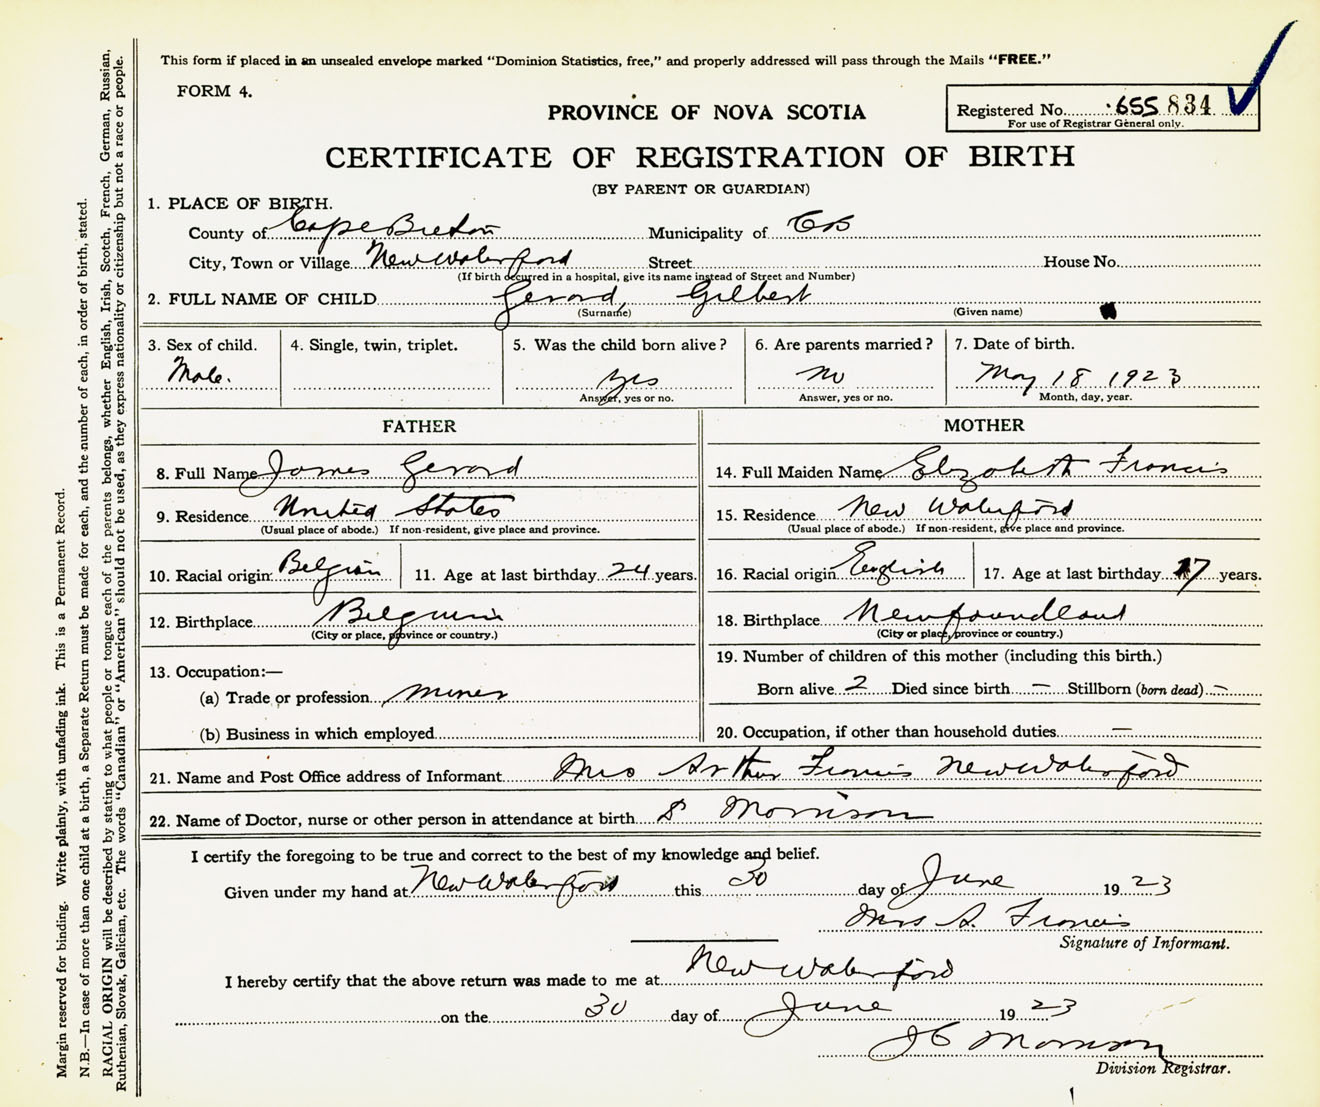 This form if placed in an unsealed envelope marked "Dominion Statistics, free," and properly addressed will pass through the Mails "FREE."
FORM 4.
PROVINCE OF NOVA SCOTIA
Registered No. 655 834
For use of Registrar General only.
CERTIFICATE OF REGISTRATION OF BIRTH
(BY PARENT OR GUARDIAN)
1. PLACE OF BIRTH.
County of Cape Breton Municipality of CB
City, Town or Village New Waterford Street House No.
(If birth occurred in a hospital, give its name instead of Street and Number)
2. FULL NAME OF CHILD Gerard, Gilbert
(Surname) (Given name)
3. Sex of child. 4. Single, twin, triplet. 5. Was the child born alive? 6. Are parents married? 7. Date of birth.
Male. yes no May 18 1923
Answer, yes or no. Answer, yes or no. Month, day, year.
FATHER MOTHER
8. Full Name James Gerard 14. Full Maiden Name Elizabeth Francis
9. Residence United States 15. Residence New Waterford
(Usual place of abode.) If non-resident, give place and province. (Usual place of abode.) If non-resident, give place and province.
10. Racial origin Belgian 11. Age at last birthday 24 years. 16. Racial origin English 17. Age at last birthday 17 years.
12. Birthplace Belguim 18. Birthplace Newfoundland
(City or place, province or country.) (City or place, province or country.)
13. Occupation:— 19. Number of children of this mother (including this birth.)
(a) Trade or profession miner Born alive 2 Died since birth — Stillborn (born dead) –
(b) Business in which employed 20. Occupation, if other than household duties —
21. Name and Post Office address of Informant Mrs Arthur Francis New Waterford
22. Name of Doctor, nurse or other person in attendance at birth S Morrison
I certify the foregoing to be true and correct to the best of my knowledge and belief.
Given under my hand at New Waterford this 30 day of June 19 23
Mrs A. Francis
Signature of Informant.
I hereby certify that the above return was made to me at New Waterford
on the 30 day of June 19 23
J C Morrison
Division Registrar.
Margin reserved for binding. Write plainly, with unfading ink. This is a Permanent Record.
N.B.—In case of more than one child at a birth, a Separate Return must be made for each, and the number of each, in order of birth, stated.
RACIAL ORIGIN will be described by stating to what people or tongue each of the parents belongs, whether English, Irish, Scotch, French, German, Russian,
Ruthenian, Slovak, Galician, etc. The words "Canadian" or "American" should not be used, as they express nationality or citizenship but not a race or people.